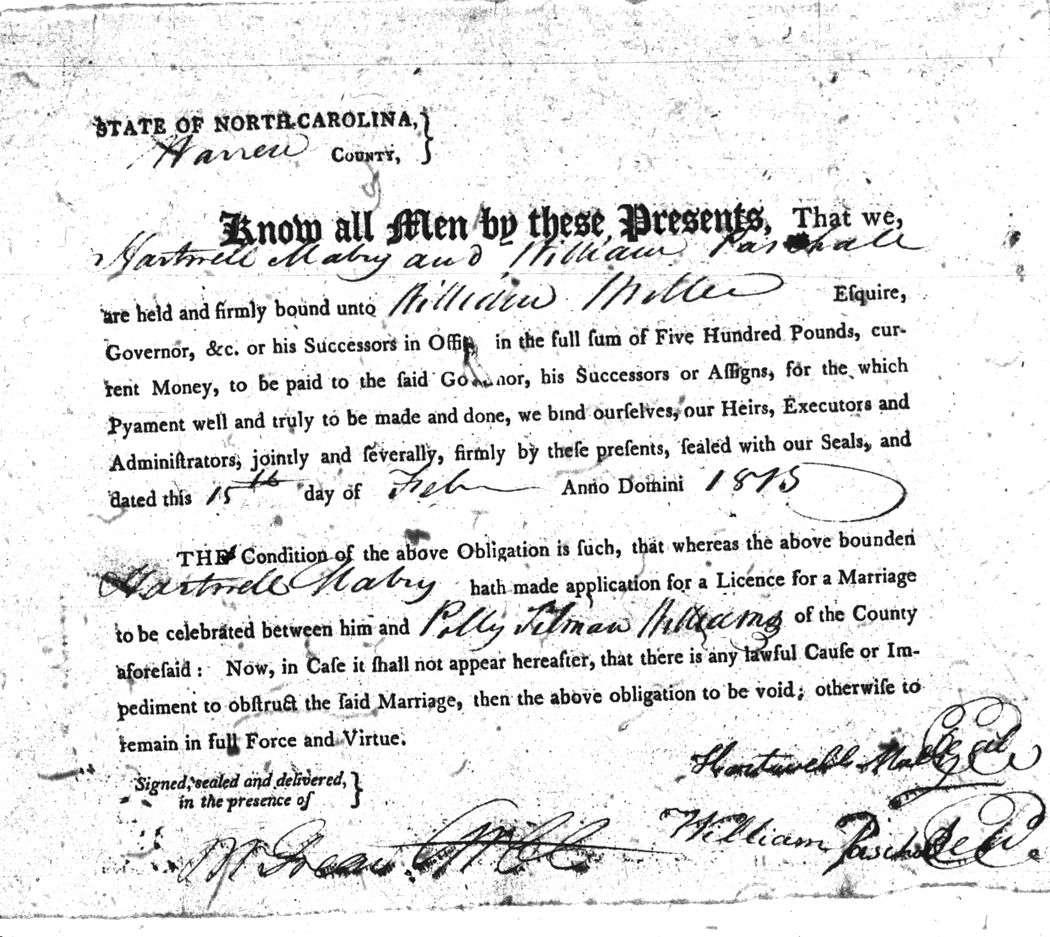 STATE OF NORTH-CAROLINA,
Warren COUNTY,
Know all Men by these Presents, That we,
Hartwell Mabry and William Paschall
are held and firmly bound unto William Miller Eſquire,
Governor, &c. or his Successors in Office, in the full ſum of Five Hundred Pounds, cur-
rent Money, to be paid to the ſaid Governor, his Successors or Aſſigns, for the which
Pyament well and truly to be made and done, we bind ourſelves, our Heirs, Executors and
Adminiſtrators, jointly and ſeverally, firmly by theſe preſents, ſealed with our Seals, and
dated this 15th day of Feb Anno Domini 1815
THE Condition of the above Obligation is ſuch, that whereas the above bounden
Hartwell Mabry hath made application for a Licence for a Marriage
to be celebrated between him and Polly Tilman Williams of the County
aforeſaid: Now, in Caſe it ſhall not appear hereafter, that there is any lawful Cauſe or Im-
pediment to obſtruct the ſaid Marriage, then the above obligation to be void; otherwiſe to
remain in full Force and Virtue.
Hartwell Mabry Seal
Signed, sealed and delivered,
in the presence of
William Paschall Seal